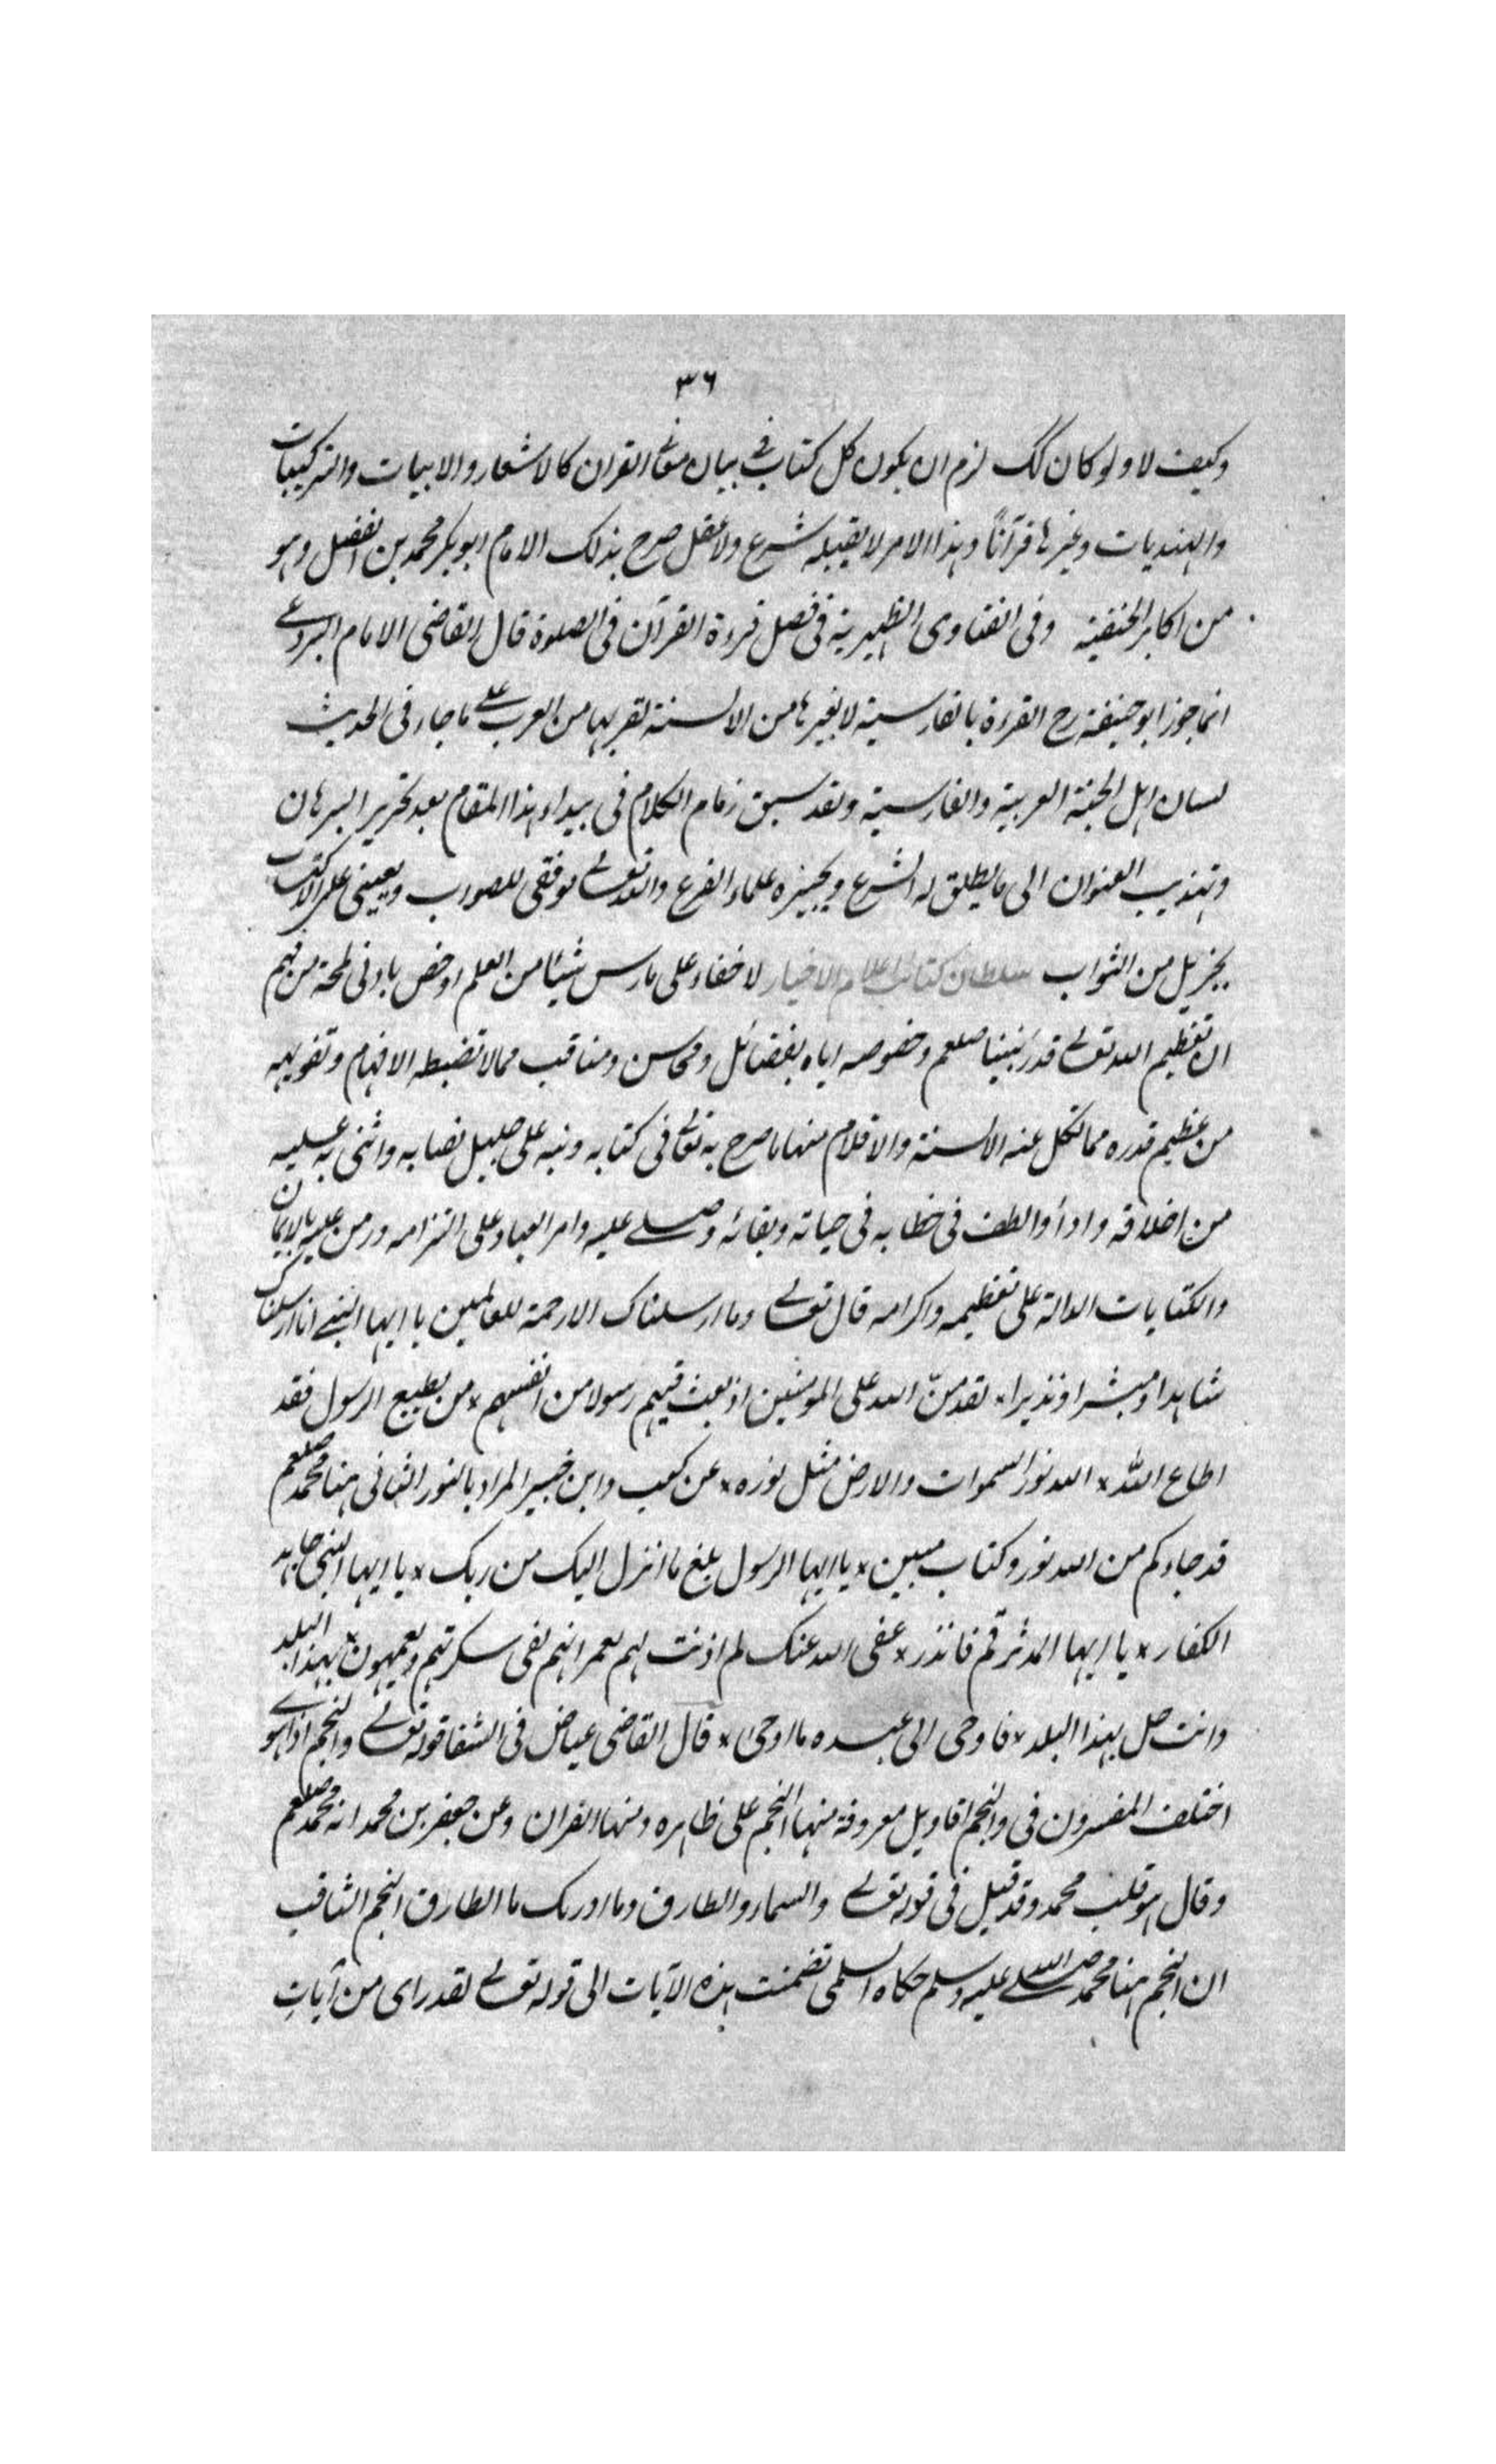 ٣٦
وكيف لا ولو كان كك لزم ان يكون كل كتاب فى بيان معانى القران كالاشعار والابيات والتركيبات
والهنديات وغيرها قرآناً وهذا الامر لا يقبله شرع ولا عقل صرح بذلك الامام ابو بكر محمد بن الفضل وهو
من اكابر الحنفية وفى الفتاوى الظهيرية فى فصل قراءة القرآن فى الصلوة قال القاضى الامام
انما جوز ابو حنيفة رح القراءة بالفارسية لا بغيرها من الالسنة لقربها من العرب على ما جاء فى الحديث
لسان اهل الجنة العربية والفارسية ولقد سبق زمام الكلام فى بيداء هذا المقام بعد تحرير البرهان
وتهذيب العنوان الى ما يطلق له الشرع ويجيزه علماء الفرع والله تعالى يوفقى للصواب ويعيننى على الاكتساب
بجزيل من الثواب سلطان كتائب اعلام الاخيار لا خفاء على مارس شيئا من العلم او خص بادنى لمحة من فهم
ان تعظيم الله تعالى قدر نبينا صلعم وخصوصه اياه بفضائل ومحاسن ومناقب مما لا تضبطه الافهام وتنويهه
من عظيم قدره مما تكل عنه الالسنة والاقلام منها ما صرح به تعالى فى كتابه ونبه على جليل نصابه واثنى به عليه
من اخلاقه واداء والطف فى خطابه فى حياته وبقائه وصلى عليه وامر العباد على التزامه ومن عليه بالايمان
والكتابات الدالة على تعظيمه واكرامه قال تعالى وما ارسلناك الا رحمة للعالمين يا ايها النبى انا ارسلناك
شاهدا ومبشرا ونذيرا * لقد منّ الله على المومنين اذ بعث فيهم رسولا من انفسهم * من يطيع الرسول فقد
اطاع الله * الله نور السموات والارض مثل نوره * عن كعب وابن جبير المراد بالنور الثانى هنا محمد صلعم
قد جاءكم من الله نور وكتاب مبين * يا ايها الرسول بلغ ما انزل اليك من ربك * يا ايها النبى جاهد
الكفار * يا ايها المدثر قم فانذر * عفى الله عنك لم اذنت لهم لعمر انهم لفى سكرتهم يعمهون * بهذا البلد
وانت حل بهذا البلد * فاوحى الى عبده ما اوحى * قال القاضى عياض فى الشفا قوله تعالى والنجم اذا هوى
اختلف المفسرون فى والنجم اقاويل معروفة منها النجم على ظاهره ومنها القران وعن جعفر بن محمد انه محمد صلعم
وقال هو قلب محمد وقد قيل فى قوله تعالى والسماء والطارق وما ادريك ما الطارق النجم الثاقب
ان النجم هنا محمد صلى الله عليه وسلم حكاه السلمى تضمنت هذه الآيات الى قوله تعالى لقد راى من آيات